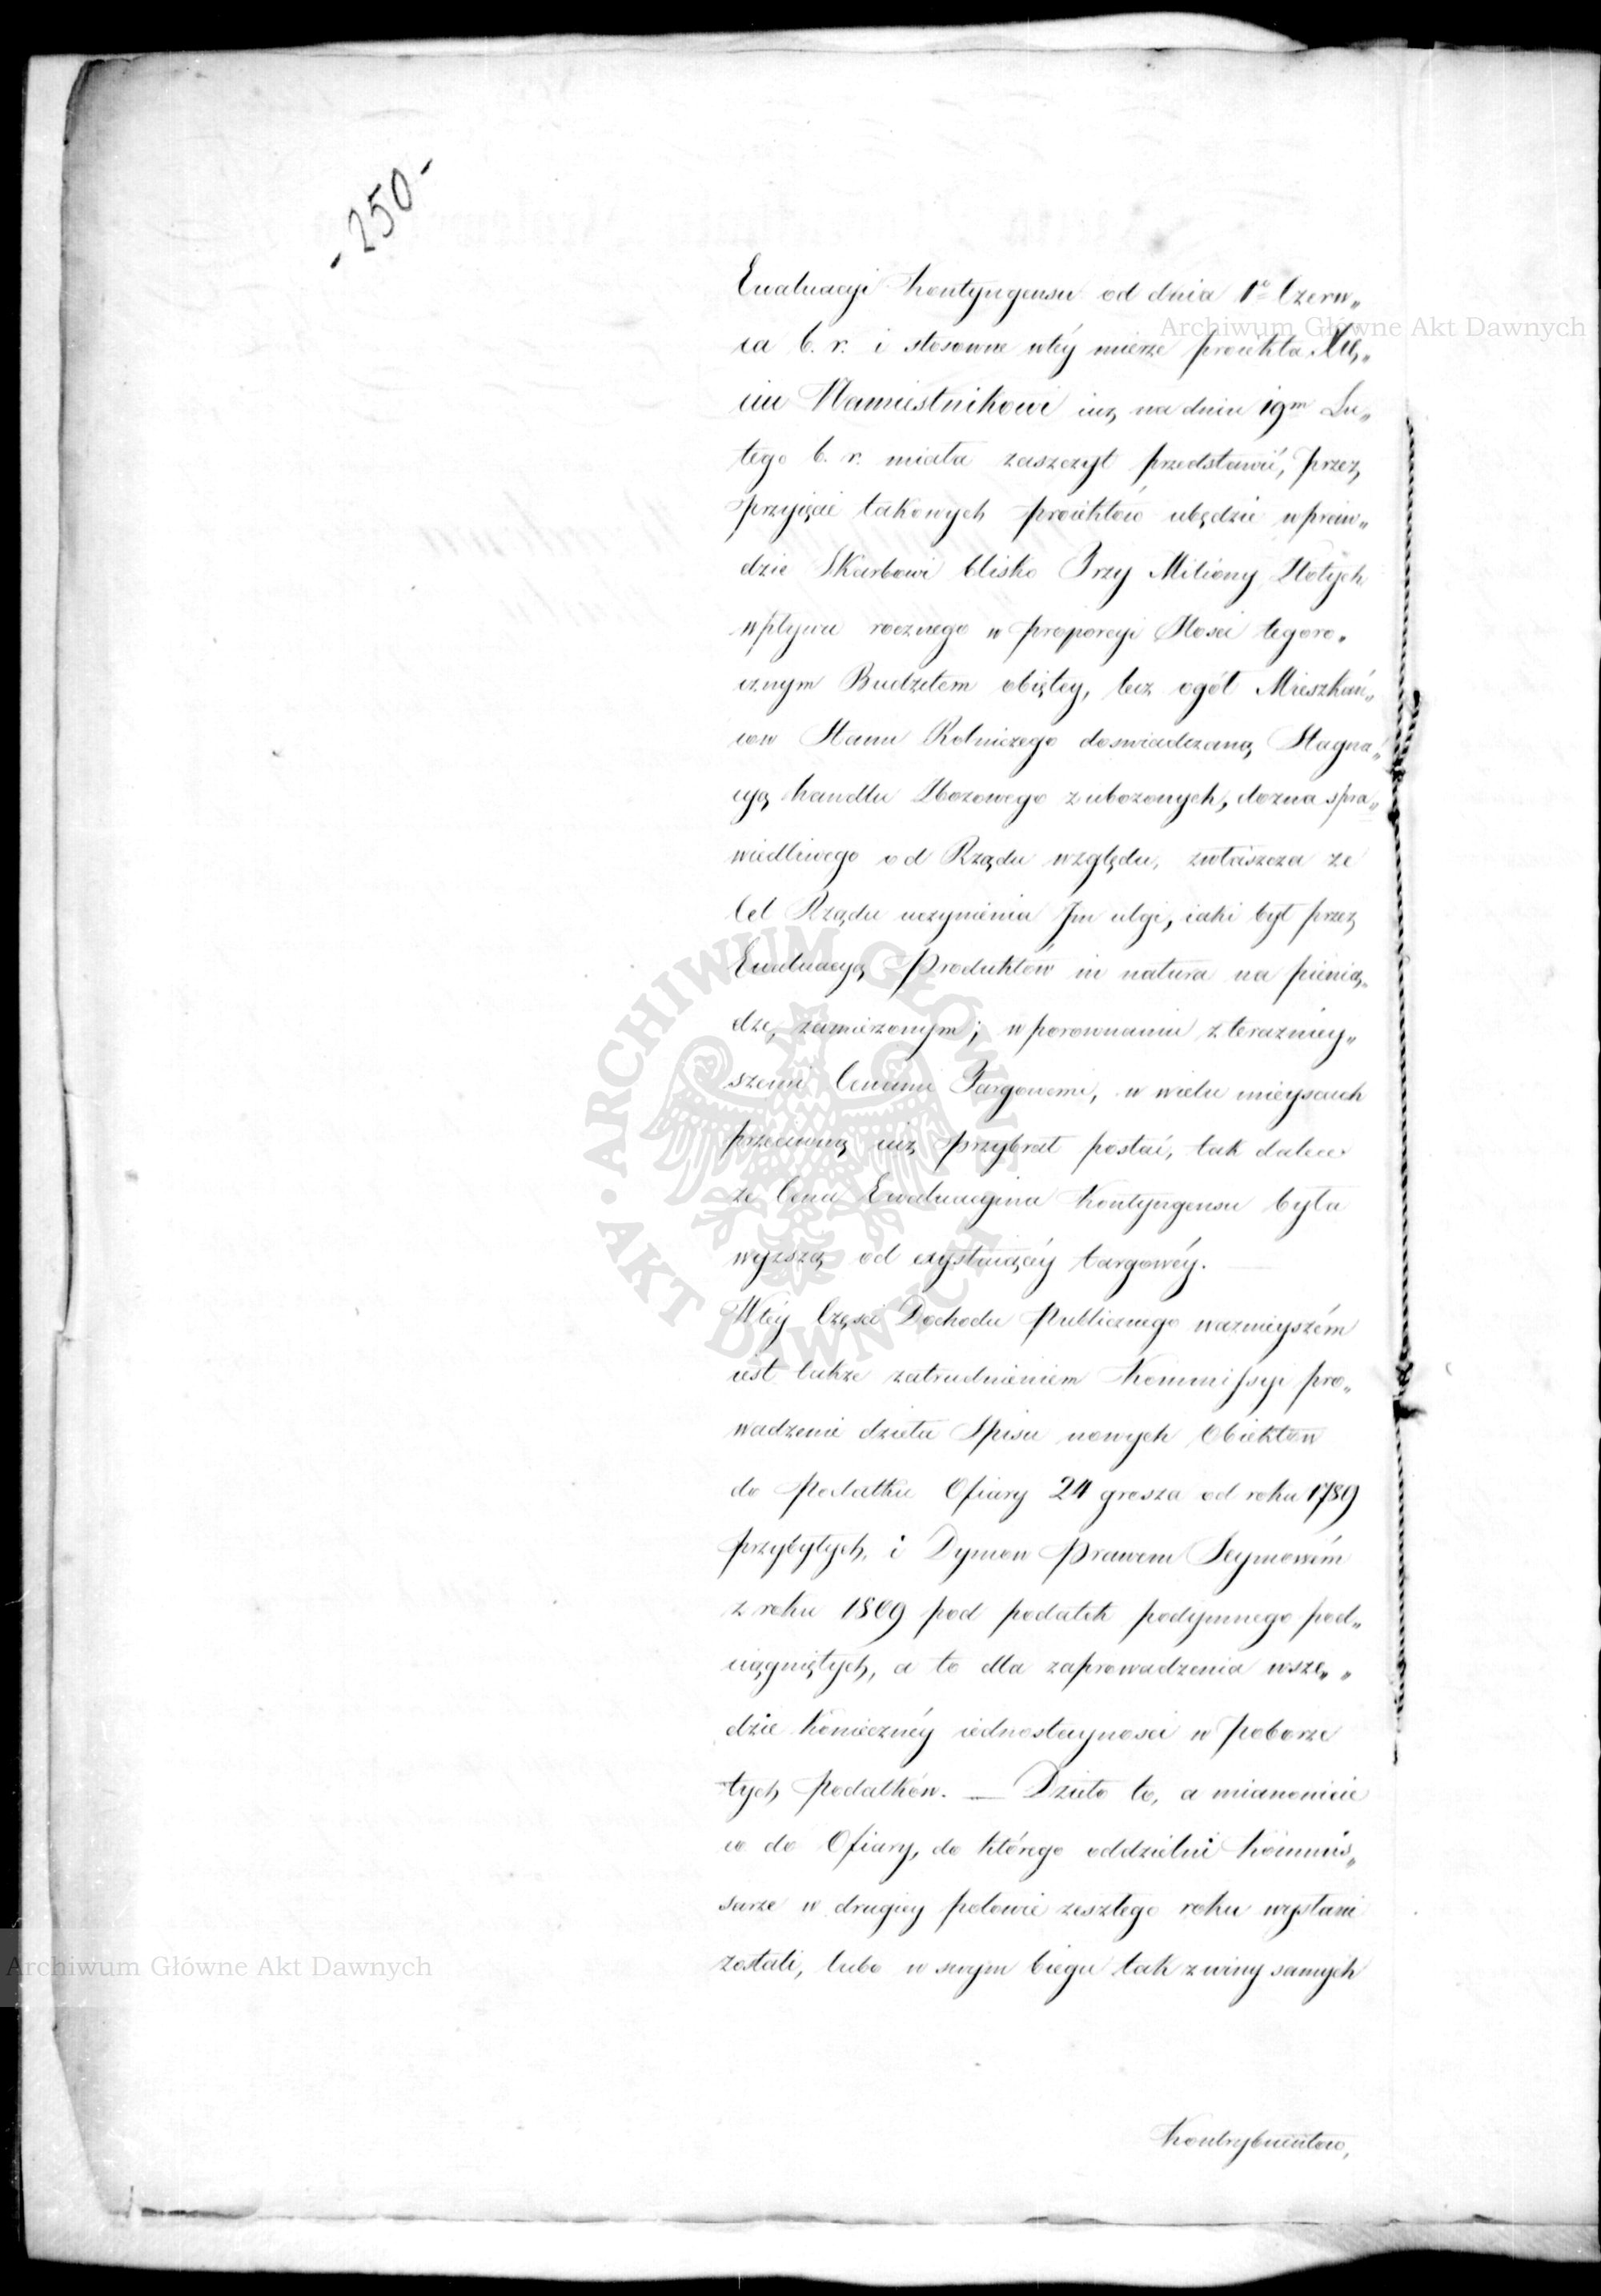 - 250 -
Ewaluacyi Kontyngensu od dnia 1º Czerw„
ca b. r. i stosowne wtéy mierze proiekta Xię„
ciu Namiestnikowi iuż na dniu 19m Lu„
tego b. r. miała zaszczyt przedstawić, przez
przyięcie takowych proiektów ubędzie wpraw„
dzie Skarbowi blisko Trzy Miliony Złotych
wpływu rocznego w proporcyi Ilosci tegoro„
cznym Budżetem obiętey, lecz ogół Mieszkań„
cow Stanu Rolniczego doswiadczaną Stagna„
cyą handlu Zbozowego zubozonych, dozna spra„
wiedliwego od Rządu względu, zwłaszcza ze
Cel Rządu uczynienia Im ulgi, iaki był przez
Ewaluacyą Produktów in natura na pienią„
dze, zamierzonym; w porownaniu z terazniey„
szemi Cenami Targowemi, w wielu mieyscach
przeciwną iuż przybrał postać, tak dalece
ze Cena Ewaluacyina Kontyngensu była
wyzszą od exystuiącéy targowéy.
Wtéy Częsci Dochodu Publicznego wazniejszém
iest takze zatrudnieniem Kommissyi pro„
wadzenie dzieła Spisu nowych Obiektow
do Podatku Ofiary 24 grosza od roku 1789
przybyłych, i Dymow Prawem Seymowém
z roku 1809 pod podatek podymnego pod„
ciągniętych, a to dla zaprowadzenia wszę„
dzie konieczney iednostaynosci w poborze
tych podatków. — Dzieło to, a mianowicie
co do Ofiary, do którego oddzielni Kommis„
sarze w drugiey połowie zeszłego roku wysłani
zostali, lubo w swym biegu tak z winy samych
Kontrybuentow,
Archiwum Główne Akt Dawnych
ARCHIWUM GŁÓWNE AKT DAWNYCH
Archiwum Główne Akt Dawnych